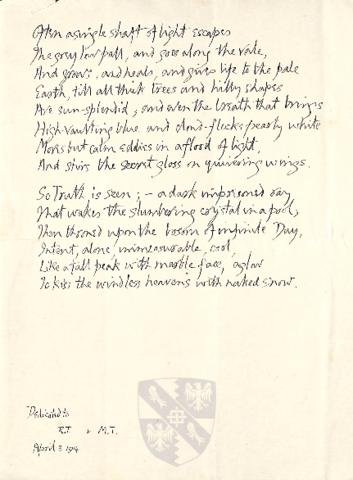 Often a single shaft of light escapes
The grey low pall, and goes along the vale,
And grows, and heals, and gives life to the pale
Earth, till all thick trees and hilly shapes
Are sun-splendid; and even the breath that brings
High-vaulting blue and cloud-flecks pearly white
Mows but calm eddies in a flood of light,
And stirs the secret gloss on quivering wings.
So Truth is seen; – a dark imprisoned ray
That wakes the slumbering crystal in a pool,
Then throned upon the bosom of infinite Day,
Intent, alone, immeasurable, cool,
Like a tall peak with marble face, aglow
To kiss the windless heavens with naked snow.
Dedicated to
R.T. & M.T.
April 3 194